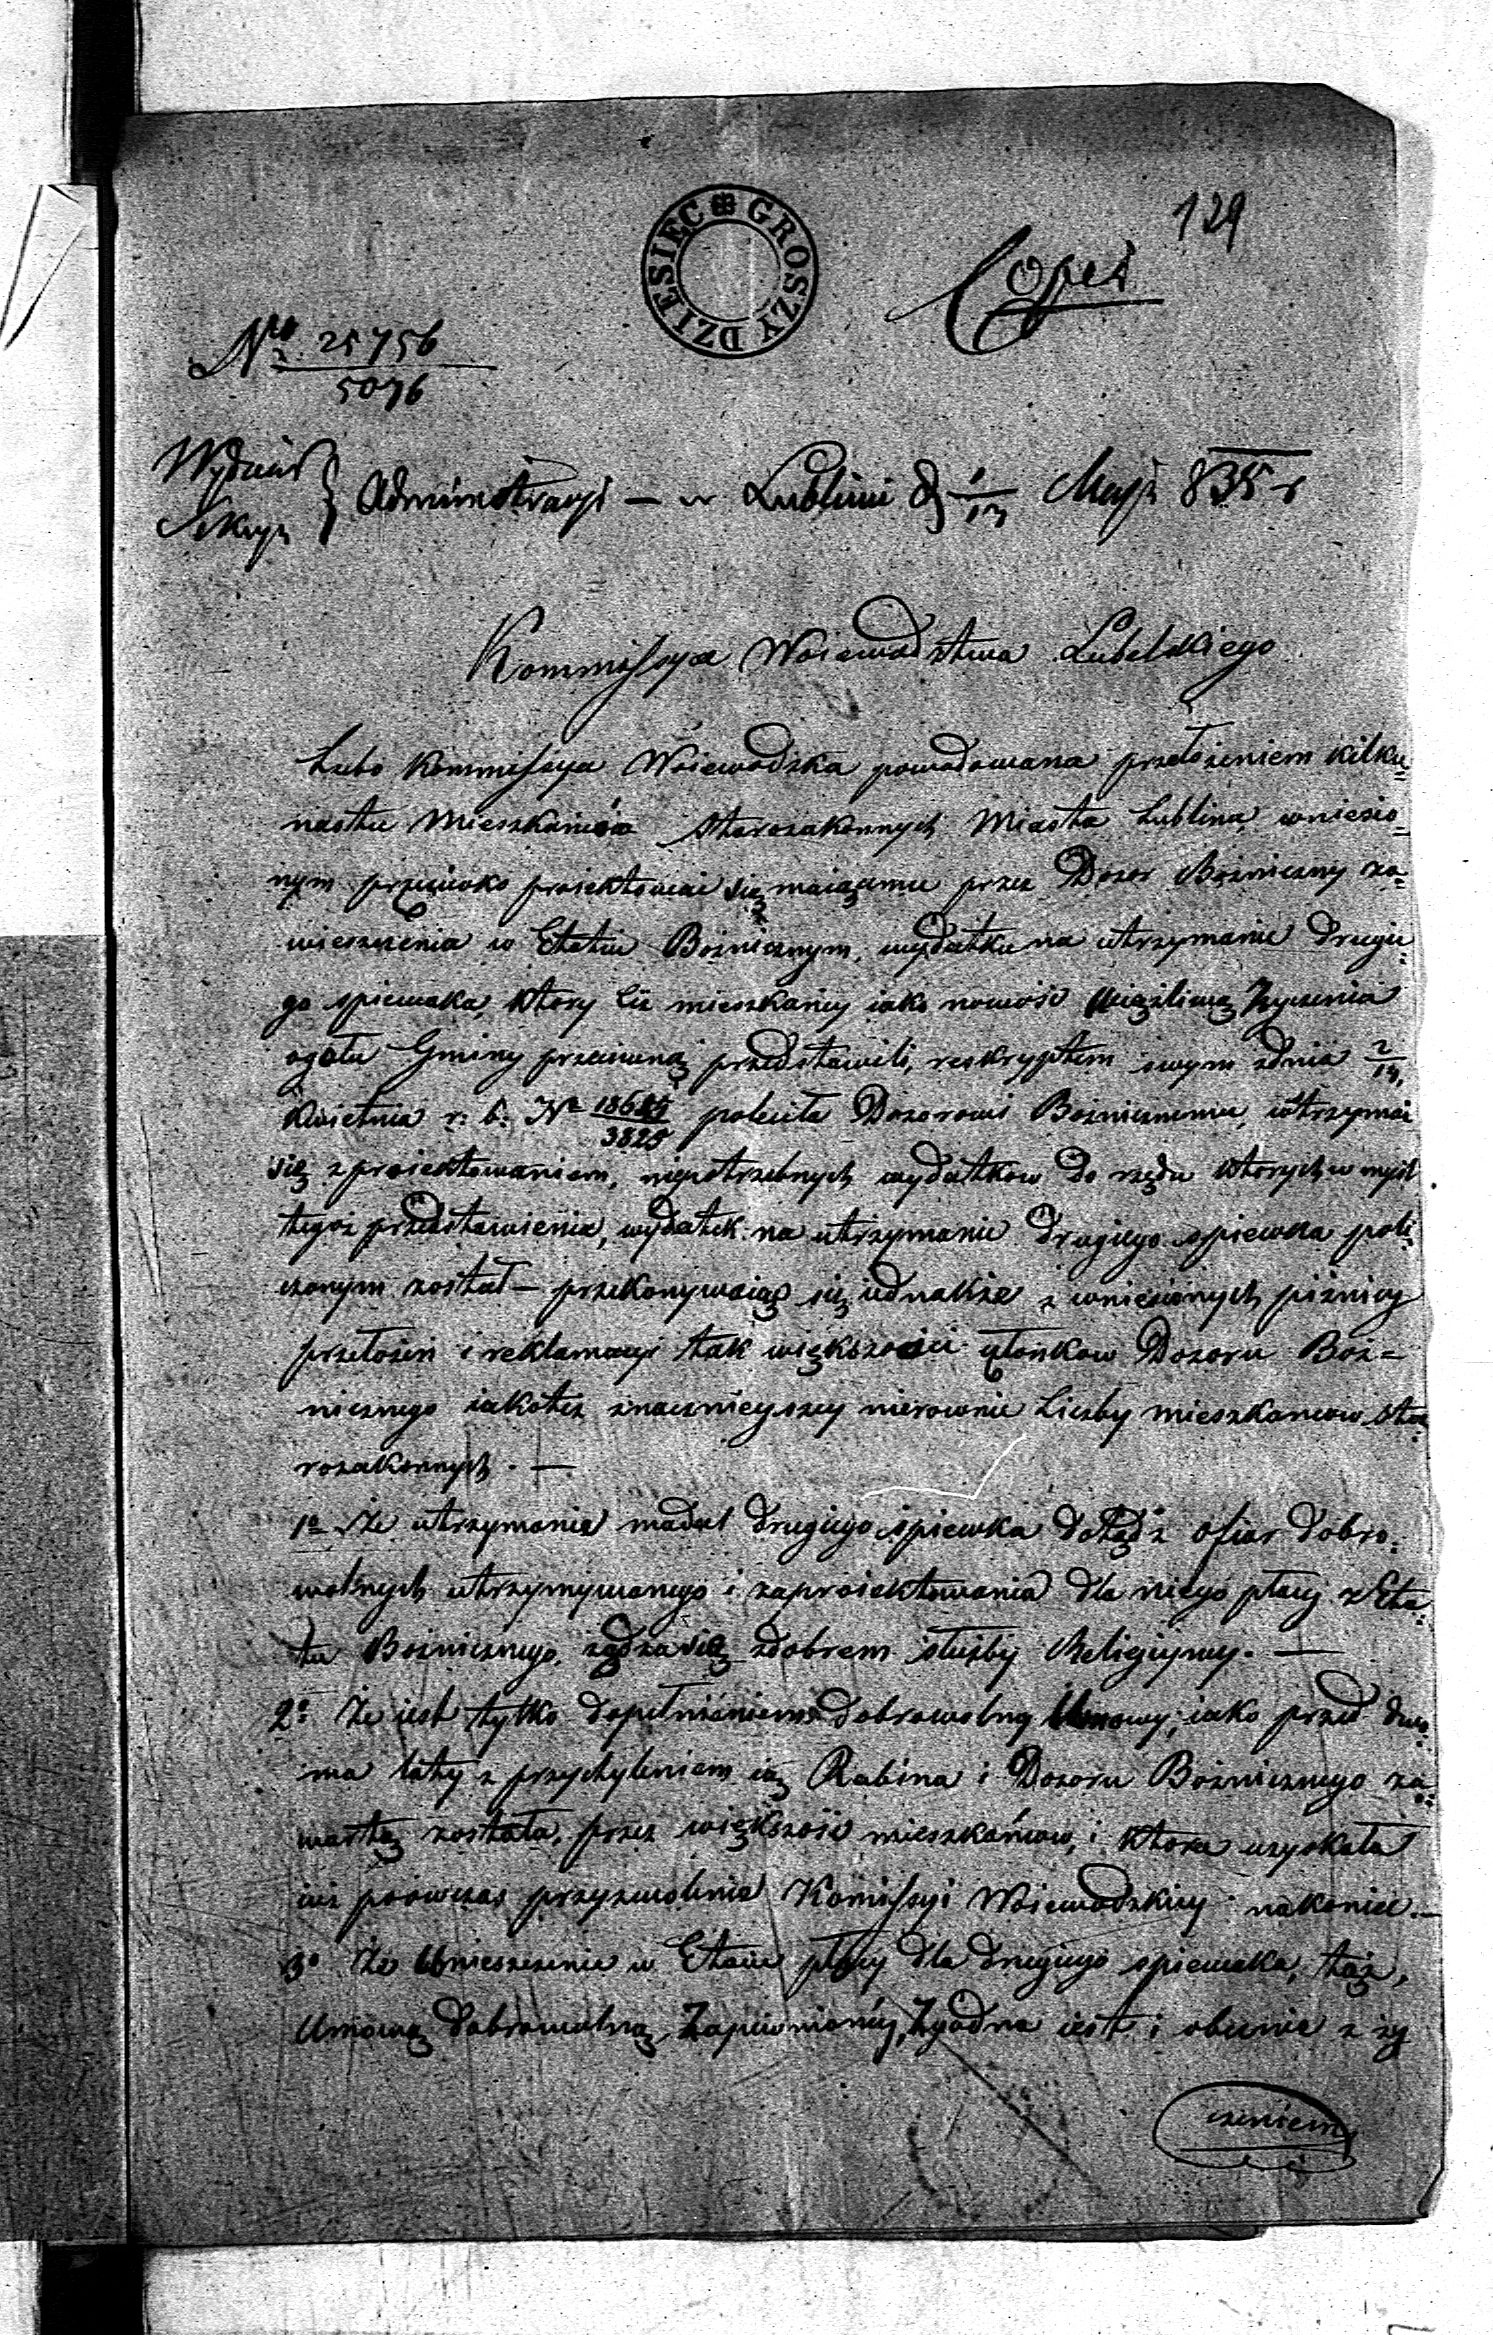 129
DZIESIĘĆ GROSZY
Copia
Nro 25756
5076
Wydział
Sekcya
Administracyi — w Lublinie d. 1/13 Maja 835 r
Kommissya Woiewództwa Lubelskiego
Lubo Kommissya Woiewodzka powodowana przełożeniem kilku-
nastu Mieszkańców Starozakonnych Miasta Lublina, wniesio-
nym przeciwko proiektować się maiącemu przez Dozor Bożniczny za-
mieszczenia w Etatu Bożnicznym, wydatku na utrzymanie drugie-
go spiewaka, ktory ciż mieszkańcy iako nowość uciążliwą życzenia
ogołu Gminy przeciwną przedstawili, reskryptem swym z dnia 2/14
Kwietnia r. b. No 18685/3825 poleciła Dozorowi Bożnicznemu, wstrzymać
się z proiektowaniem, niepotrzebnych wydatkow do rzędu ktorych w myśl
tegoż przedstawienia, wydatek na utrzymanie drugiego spiewka poli-
czonym został — przekonywaiąc się iednakże z wniesionych pózniey
przełożeń i reklamacyi tak większości członkow Dozoru Boż=
nicznego iakoteż znacznieyszey nierownie Liczby mieszkancow sta-
rozakonnych. —
1o Że utrzymanie nadal drugiego spiewka dotąd z ofiar dobro-
wolnych utrzymywanego i zaproiektowania dla niego płacy z Eta-
tu Bożnicznego, zgadza się z dobrem służby Religiyney. —
2o Że iest tylko dopełnieniem dobrowolney Umowy, iako przed dwo-
ma laty z przychyleniem się Rabina i Dozoru Bożnicznego za-
wartą została, przez większość mieszkańcow, i ktora uzyskała
iuż poówczas przyzwolenie Komissyi Woiewodzkiey nakoniec. —
3o Że Umieszczenie w Etacie płacy dla drugiego spiewaka, tąż,
Umową dobrowolną Zapewnioney, Zgodna iest i obecnie z ży
czeniem